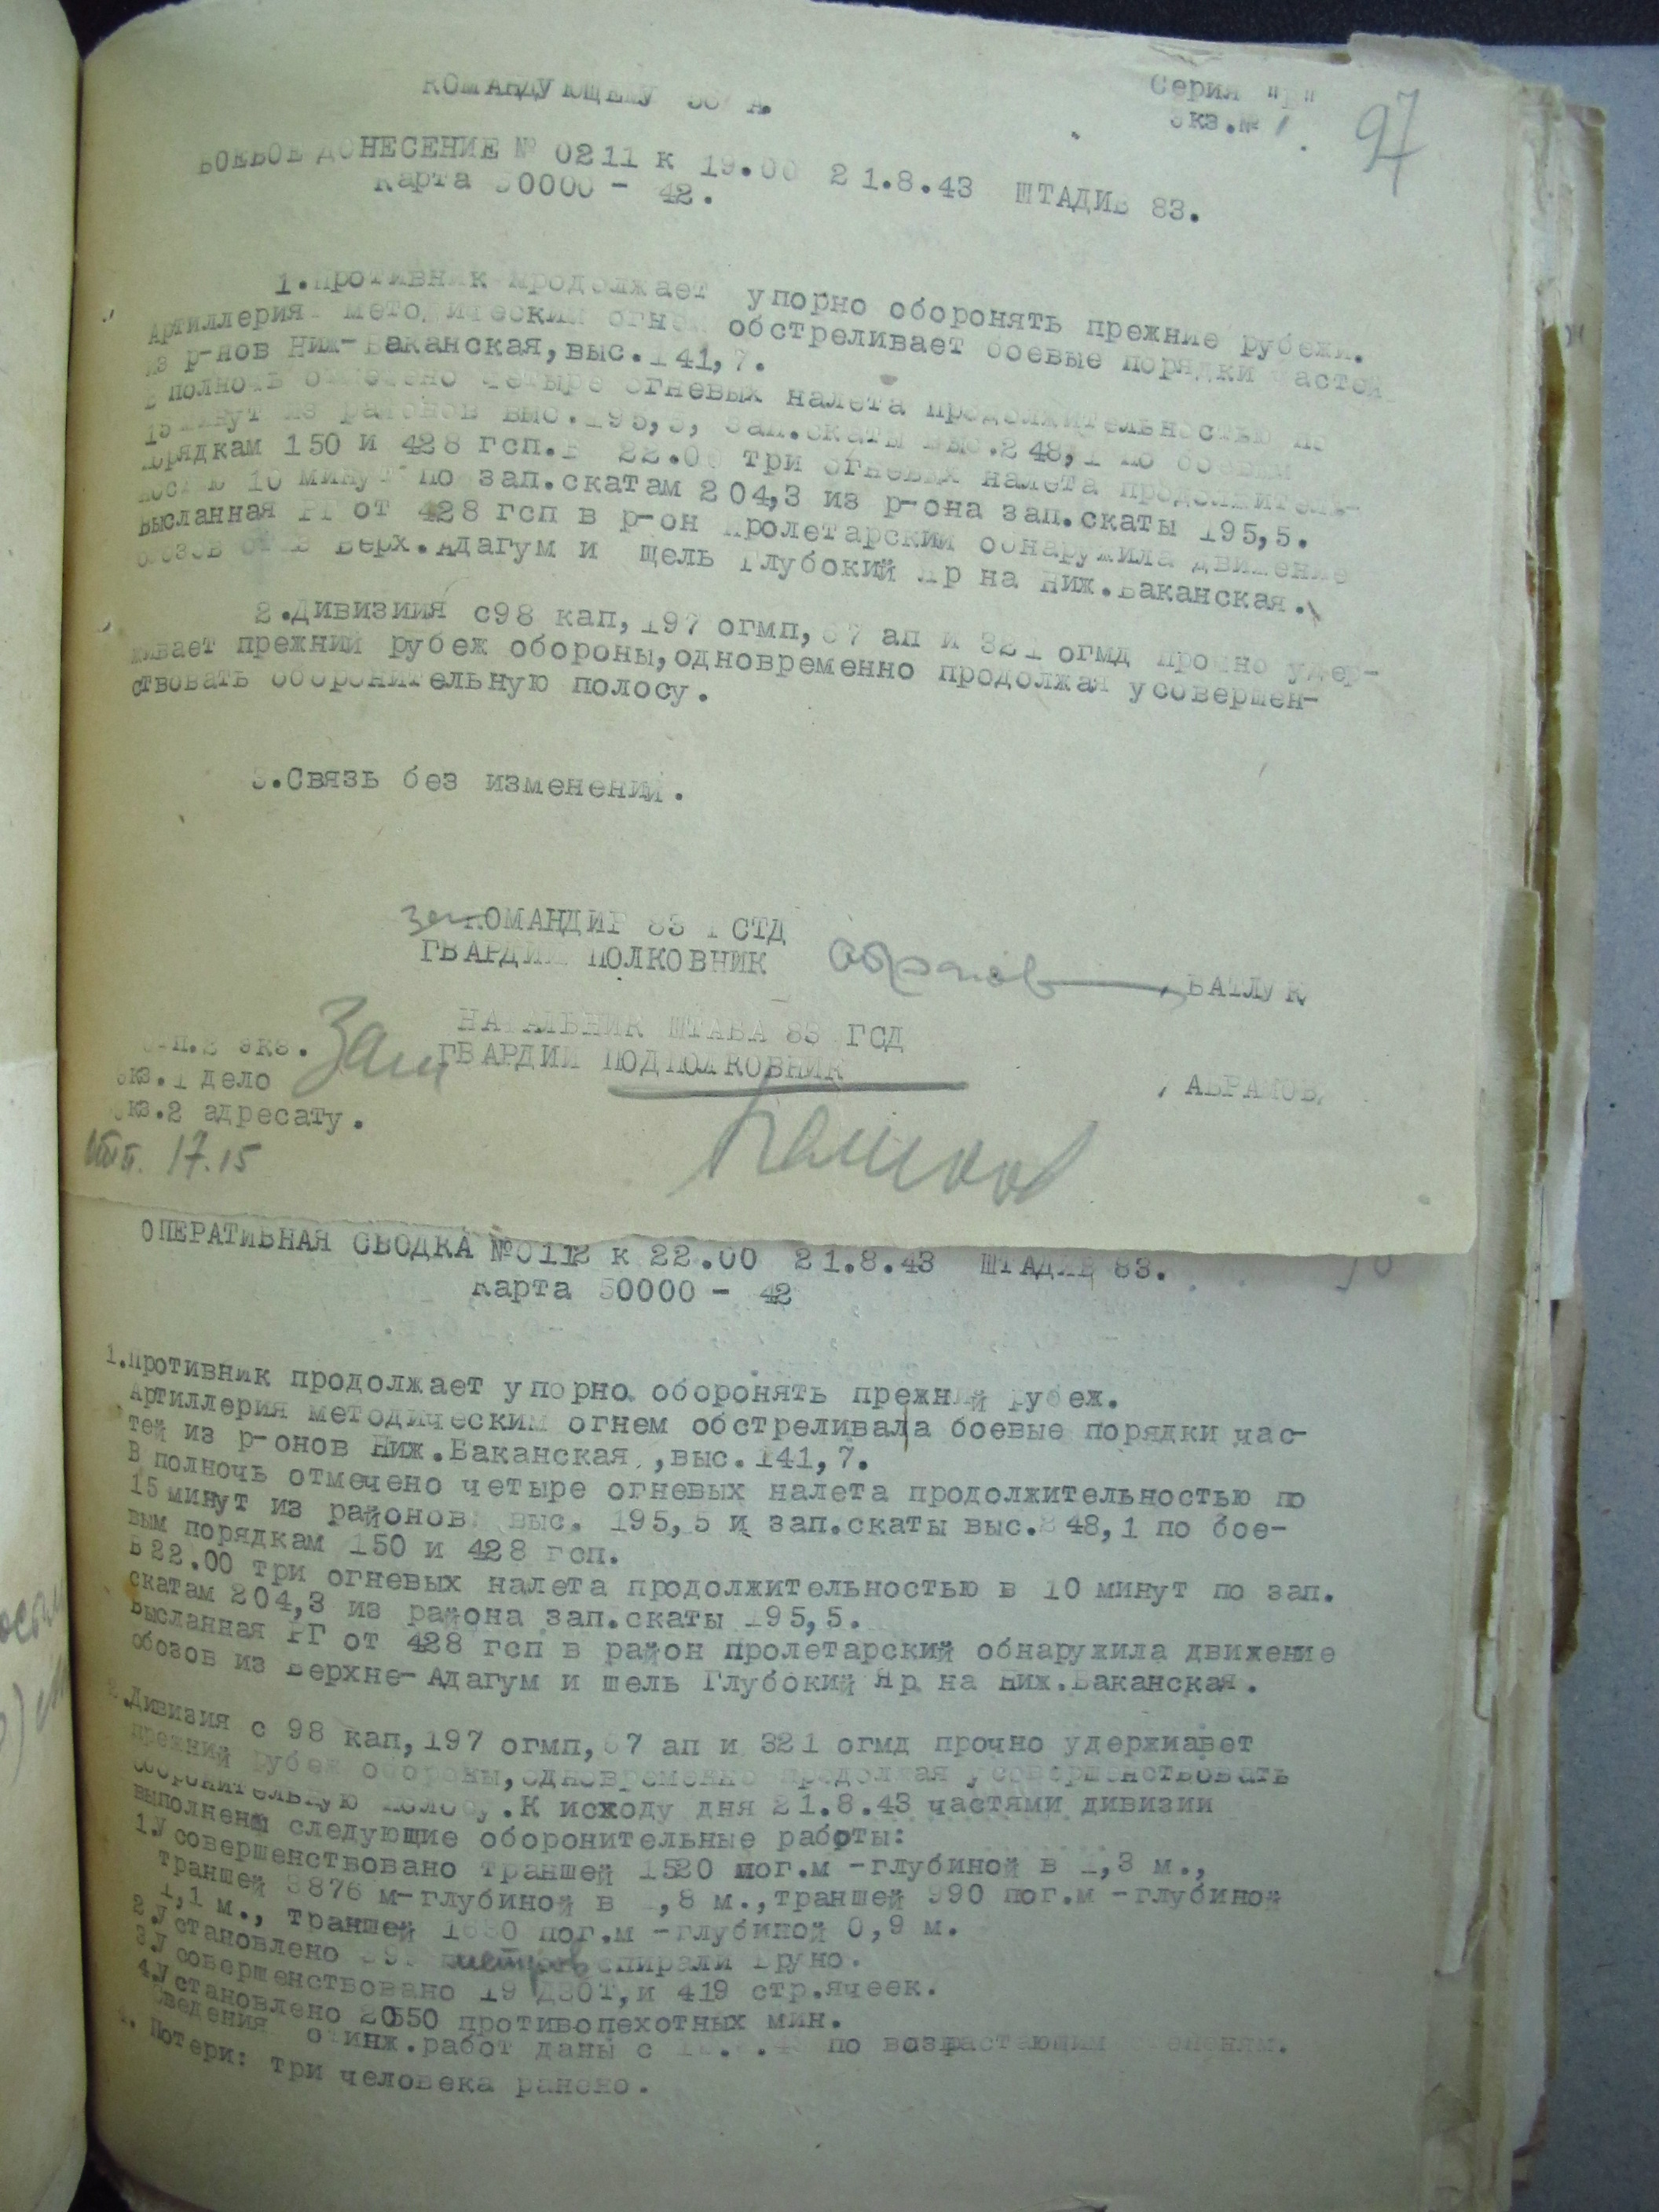 КОМАНДУЮЩЕМУ 56 А.
Серия "Г"
Экз.№ 1
97
БОЕВОЕ ДОНЕСЕНИЕ № 0211 к 19.00 21.8.43 ШТАДИВ 83.
Карта 50000 - 42.
1.Противник продолжает упорно оборонять прежние рубежи.
Артиллерия методическим огнем обстреливает боевые порядки частей
из р-нов Ниж-Баканская,выс.141,7.
В полночь отмечено четыре огневых налета продолжительностью по
15минут из районов выс.195,5, зап.скаты выс.248,1 по боевым
порядкам 150 и 428 гсп.В 22.00 три огневых налета продолжитель-
ностью 10 минут по зап.скатам 204,3 из р-она зап.скаты 195,5.
Высланная РГ от 428 гсп в р-он Пролетарский обнаружила движение
обозов из Верх.Адагум и щель Глубокий Яр на Ниж.Баканская.
2.Дивизиия с98 кап,197 огмп,67 ап и 321 огмд прочно удер-
живает прежний рубеж обороны,одновременно продолжая усовершен-
ствовать оборонительную полосу.
3.Связь без изменений.
зам КОМАНДИР 83 ГСТД
ГВАРДИИ ПОЛКОВНИК Абрамов , БАТЛУК,
НАЧАЛЬНИК ШТАБА 83 ГСД
Зам ГВАРДИИ ПОДПОЛКОВНИК , АБРАМОВ,
отп.2 экз.
экз.1 дело
экз.2 адресату.
17.15
ОПЕРАТИВНАЯ СВОДКА №0112 к 22.00 21.8.43 ШТАДИВ 83.
Карта 50000 - 42
1.Противник продолжает упорно оборонять прежний рубеж.
Артиллерия методическим огнем обстреливала боевые порядки час-
тей из р-онов Ниж.Баканская,,выс.141,7.
В полночь отмечено четыре огневых налета продолжительностью по
15минут из районов выс. 195,5 и зап.скаты выс.248,1 по бое-
вым порядкам 150 и 428 гсп.
В22.00 три огневых налета продолжительностью в 10 минут по зап.
скатам 204,3 из района зап.скаты 195,5.
Высланная РГ от 428 гсп в район пролетарский обнаружила движение
обозов из Верхне-Адагум и шель Глубокий Яр на Ниж.Баканская.
2.Дивизия с 98 кап,197 огмп,67 ап и 321 огмд прочно удерживает
прежний рубеж обороны,одновременно продолжая усовершенствовать
оборонительную полосу.К исходу дня 21.8.43 частями дивизии
выполнены следующие оборонительные работы:
1.Усовершенствовано траншей 1520 пог.м -глубиной в 1,3 м.,
траншей 3876 м-глубиной в 1,8 м.,траншей 990 пог.м -глубиной
1,1 м., траншей 1680 пог.м -глубиной 0,9 м.
2.Установлено метров спирали Бруно.
3.Усовершенствовано 19 ДЗОТ,и 419 стр.ячеек.
4.Установлено 20550 противопехотных мин.
Сведения от инж.работ даны с по возрастающим степеням.
Потери: три человека ранено.